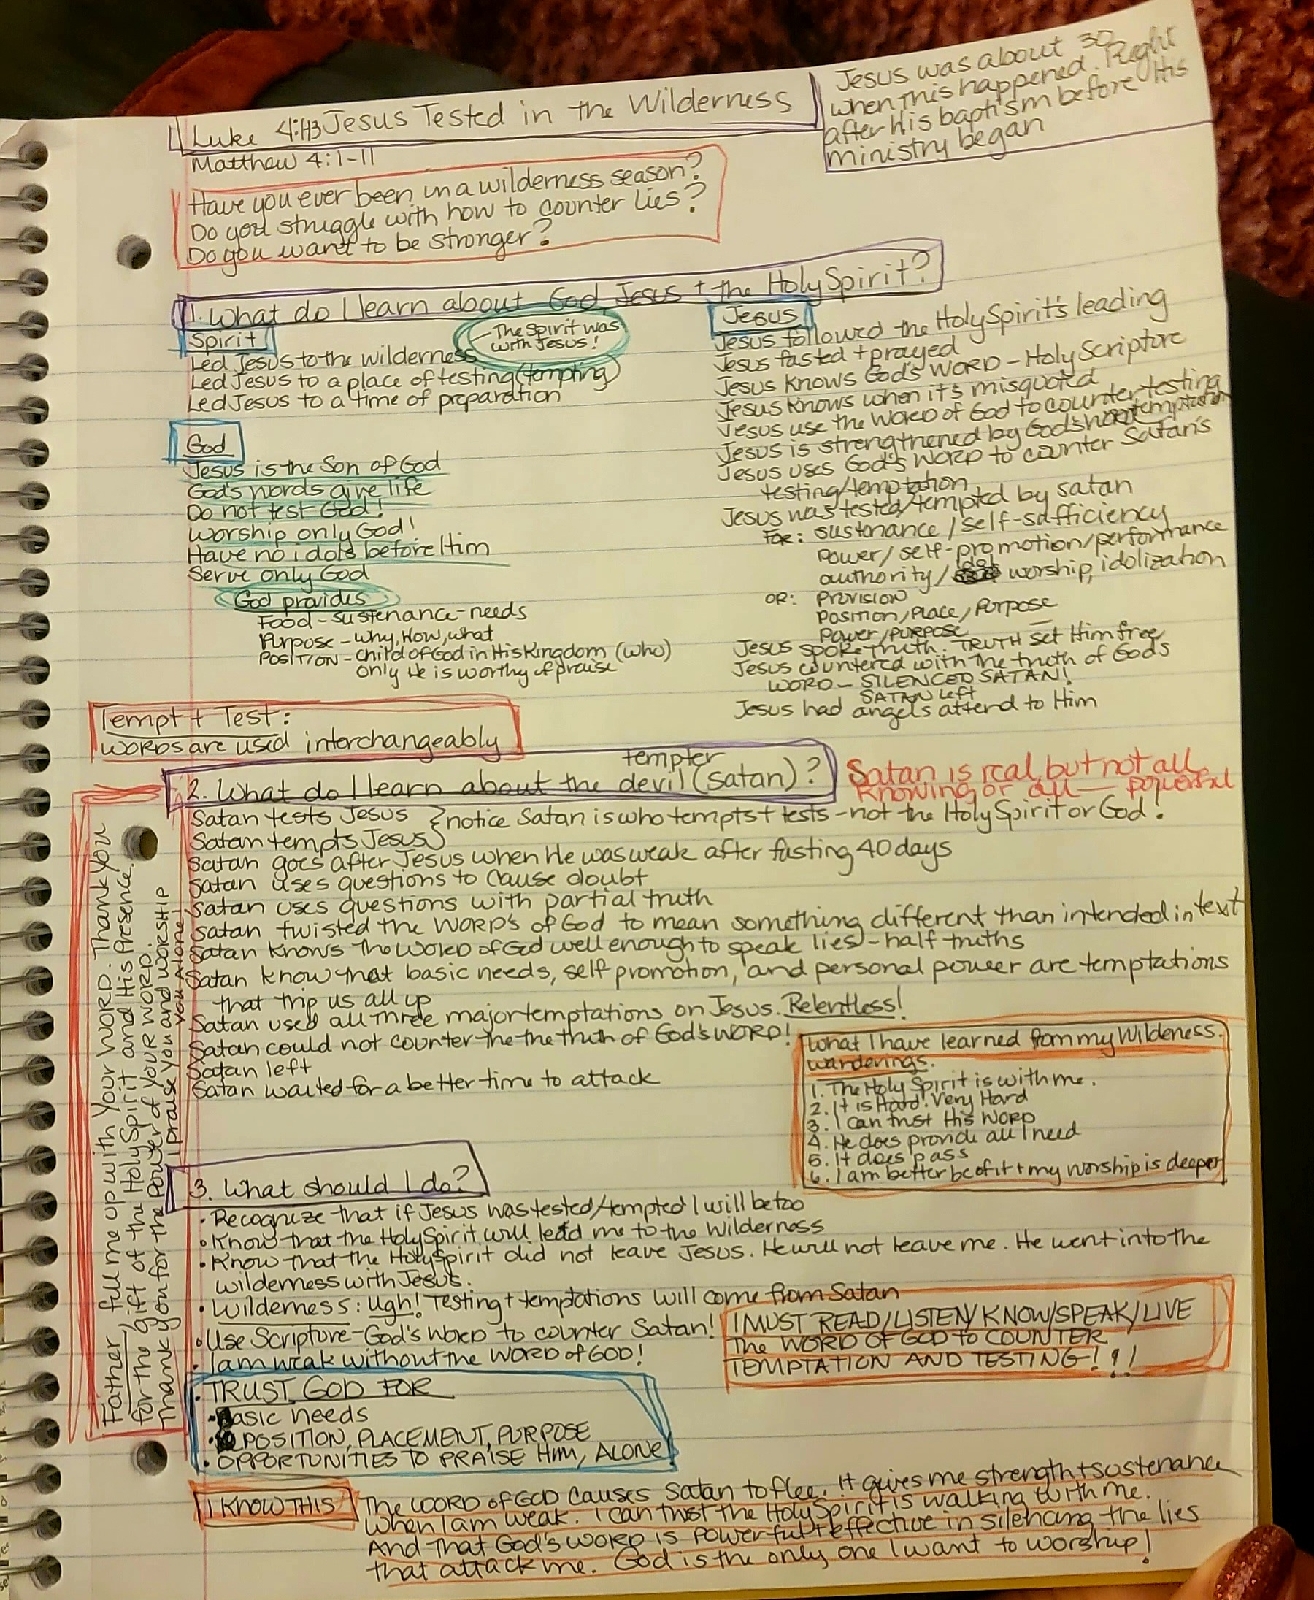 Luke 4:1-13 Jesus Tested in the Wilderness
Matthew 4:1-11
Jesus was about 30
when this happened. Right
after His baptism before His
ministry began
Have you ever been in a wilderness season?
Do you struggle with how to counter lies?
Do you want to be stronger?
1. What do I learn about God Jesus + the Holy Spirit?
Spirit
- The Spirit was
with Jesus!
Led Jesus to the wilderness
Led Jesus to a place of testing (tempting)
Led Jesus to a time of preparation
God
Jesus is the Son of God
God's words give life
Do not test God!
Worship only God!
Have no idols before Him
Serve only God
God provides
Food - sustenance - needs
Purpose - why, How, what
POSITION - child of God in His Kingdom (who)
only He is worthy of praise
Jesus
Jesus followed the Holy Spirit's leading
Jesus fasted + prayed
Jesus knows God's WORD - Holy Scripture
Jesus knows when it's misquoted
Jesus use the WORD of God to counter testing
Jesus is strengthened by God's temptation
Jesus uses God's WORD to counter Satan's
testing/temptation
Jesus was tested/tempted by satan
FOR: sustenance / self-sufficiency
Power/self-promotion/performance
authority/ idol worship, idolization
OR: PROVISION
Position/Place/Purpose
Power/PURPOSE
Jesus spoke truth. TRUTH set Him free
Jesus countered with the truth of Gods
WORD - SILENCED SATAN!
SATAN left
Jesus had angels attend to Him
Tempt + Test:
WORDS are used interchangeably
2. What do I learn about the devil (Satan)?
tempter
Satan is real, but not all
knowing or all — powerful
Satan tests Jesus } notice Satan is who tempts + tests - not the Holy Spirit or God!
Satan tempts Jesus
Satan goes after Jesus when He was weak after fasting 40 days
Satan uses questions to cause doubt
Satan uses questions with partial truth
Satan twisted the WORDS of God to mean something different than intended in text
Satan knows the WORD of God well enough to speak lies - half truths
Satan know that basic needs, self promotion, and personal power are temptations
that trip us all up
Satan used all three major temptations on Jesus. Relentless!
Satan could not counter the the truth of God's WORD!
Satan left
Satan waited for a better time to attack
What I have learned from my Wilderness
wanderings.
1. The Holy Spirit is with me.
2. It is Hard! Very Hard
3. I can trust His WORD
4. He does provide all I need
5. It does pass
6. I am better be of it + my worship is deeper
Father, fill me up with Your WORD. Thank You
for the gift of the Holy Spirit and His Presence.
Thank you for the power of YOUR WORD.
I praise you and worship
You Alone!
3. What should I do?
• Recognize that if Jesus was tested/tempted I will be too
• Know that the Holy Spirit will lead me to the Wilderness
• Know that the Holy Spirit did not leave Jesus. He will not leave me. He went into the
wilderness with Jesus.
• Wilderness: Ugh! Testing + temptations will come from Satan
• Use Scripture - God's WORD to counter Satan!
• I am weak without the WORD of GOD!
I MUST READ/LISTEN/KNOW/SPEAK/LIVE
The WORD OF GOD to COUNTER
TEMPTATION AND TESTING!!!
• TRUST GOD FOR
• Basic needs
• POSITION, PLACEMENT, PURPOSE
• OPPORTUNITIES TO PRAISE HIM, ALONE
I KNOW THIS
The WORD OF GOD CAUSES Satan to flee. It gives me strength + sustenance
when I am weak. I can trust the Holy Spirit is walking with me.
And that God's WORD is powerful + effective in silencing the lies
that attack me. God is the only one I want to worship!